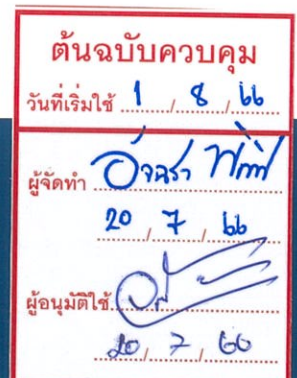 ต้นฉบับควบคุม
วันที่เริ่มใช้ 1 / 8 / 66
ผู้จัดทำ อัจฉรา
20 / 7 / 66
ผู้อนุมัติใช้
20 / 7 / 66